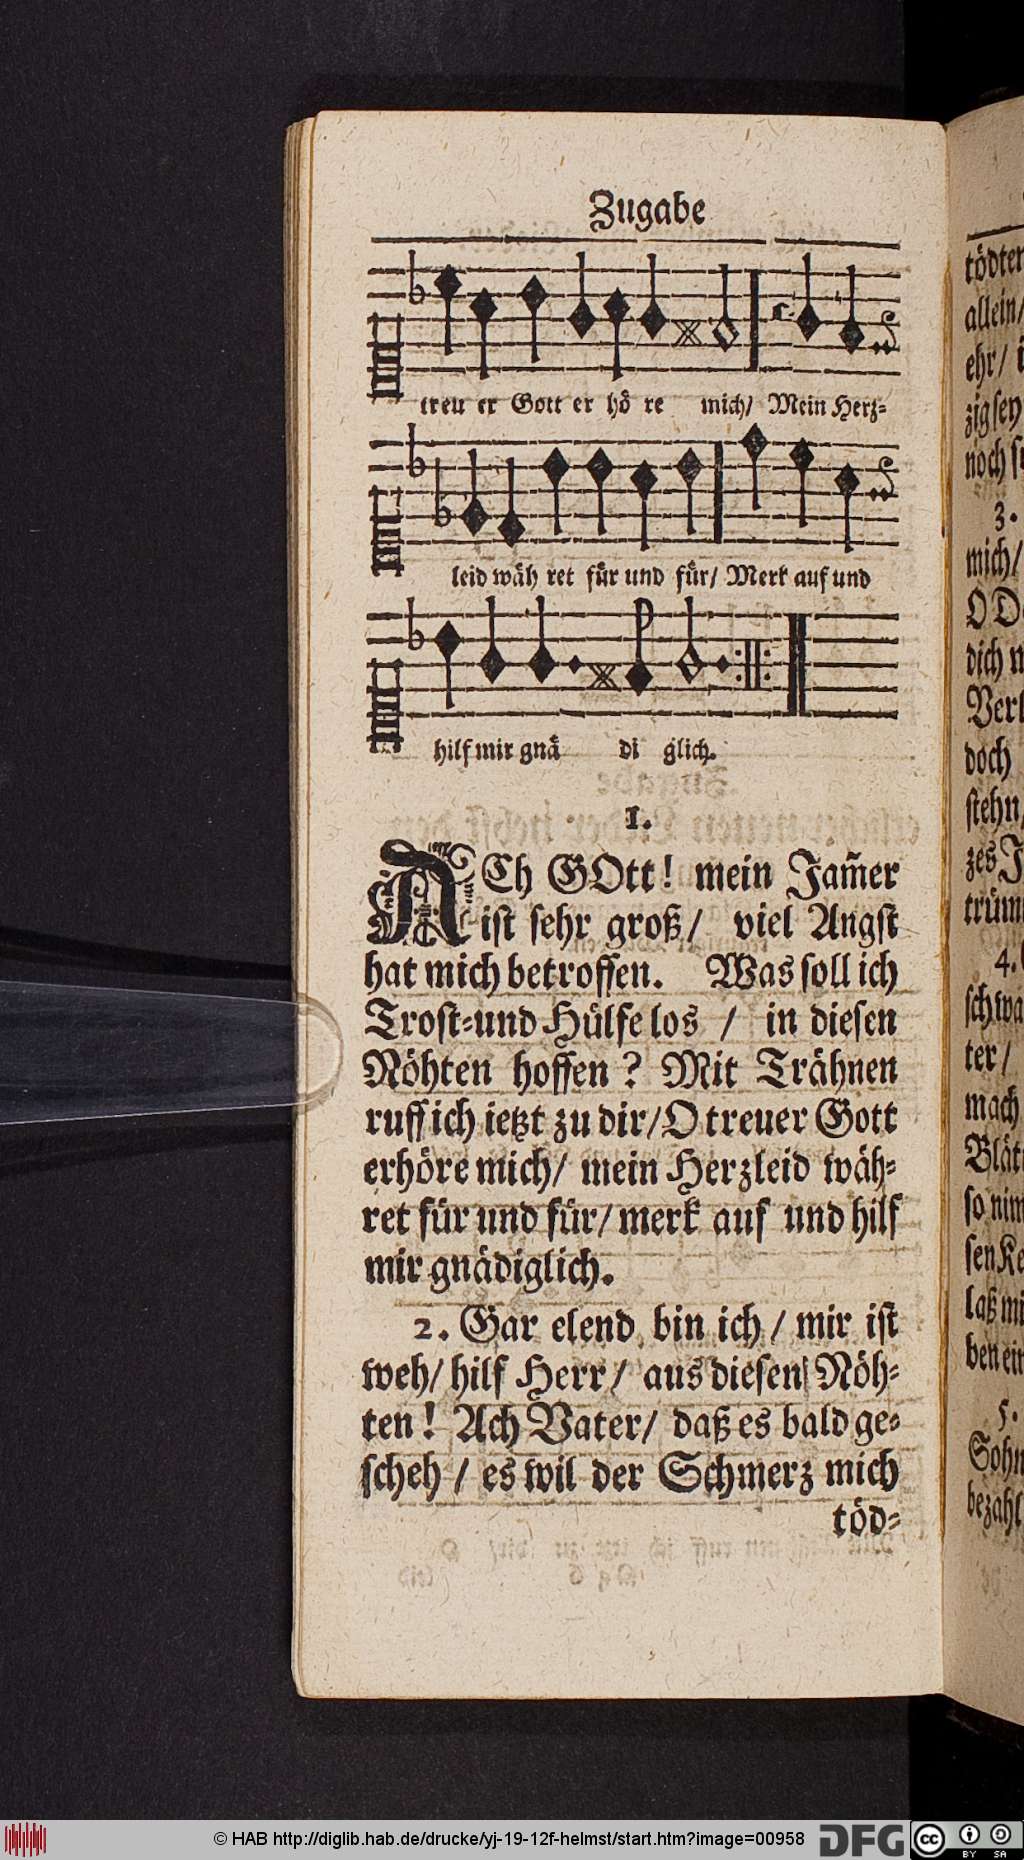 Zugabe
treu er Gott er hö re mich/ Mein Herz-
leid wäh ret für und für/ Merk auf und
hilf mir gnä di glich.
1.
ACh GOtt! mein Jam̃er
ist sehr groß/ viel Angst
hat mich betroffen. Was soll ich
Trost-und Hülfe los / in diesen
Nöhten hoffen? Mit Trähnen
ruff ich ietzt zu dir/O treuer Gott
erhöre mich/ mein Herzleid wäh-
ret für und für/ merk auf und hilf
mir gnädiglich.
2. Gar elend bin ich / mir ist
weh/ hilf Herr/ aus diesen Nöh-
ten! Ach Vater/ daß es bald ge-
scheh / es wil der Schmerz mich
töd-
tödten
allein/
ehr/
zig sey
noch
3.
mich/
O
dich
doch
stehn
zes
4.
ter/
mach
so nim
laß mi
ben ein
5.
Sohn
bezahl
© HAB http://diglib.hab.de/drucke/yj-19-12f-helmst/start.htm?image=00958
DFG
cc
BY SA